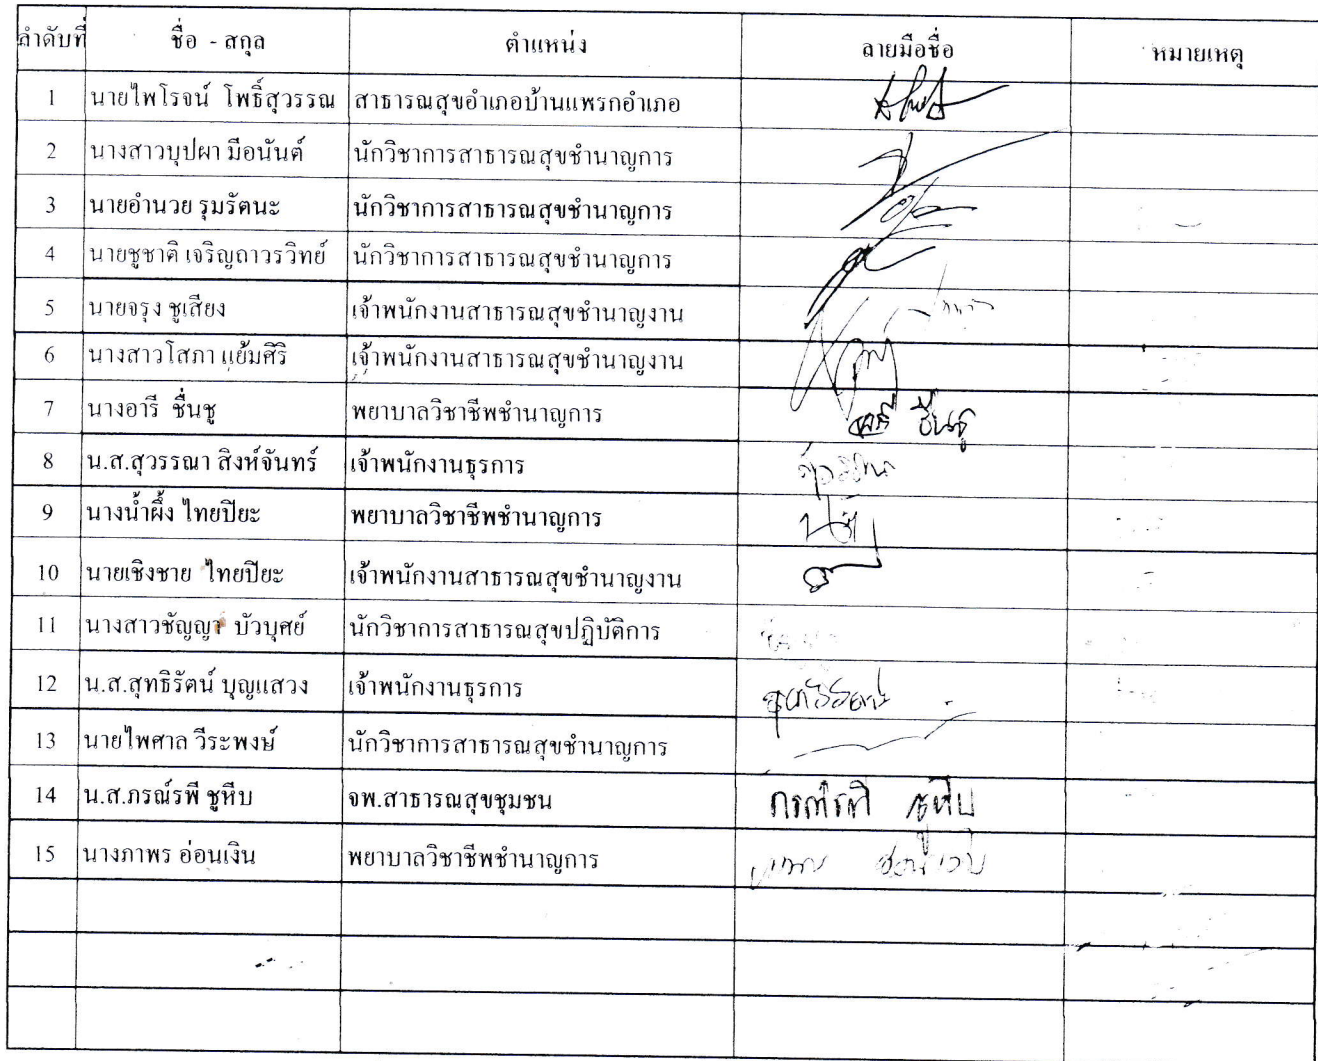 ลำดับที่ ชื่อ - สกุล ตำแหน่ง ลายมือชื่อ หมายเหตุ
1 นายไพโรจน์ โพธิ์สุวรรณ สาธารณสุขอำเภอบ้านแพรกอำเภอ
2 นางสาวบุปผา มีอนันต์ นักวิชาการสาธารณสุขชำนาญการ
3 นายอำนวย รุมรัตนะ นักวิชาการสาธารณสุขชำนาญการ
4 นายชูชาติ เจริญถาวรวิทย์ นักวิชาการสาธารณสุขชำนาญการ
5 นายจรุง ชูเสียง เจ้าพนักงานสาธารณสุขชำนาญงาน
6 นางสาวโสภา แย้มศิริ เจ้าพนักงานสาธารณสุขชำนาญงาน
7 นางอารี ชื่นชู พยาบาลวิชาชีพชำนาญการ อารี ชื่นชู
8 น.ส.สุวรรณา สิงห์จันทร์ เจ้าพนักงานธุรการ
9 นางน้ำผึ้ง ไทยปิยะ พยาบาลวิชาชีพชำนาญการ
10 นายเชิงชาย ไทยปิยะ เจ้าพนักงานสาธารณสุขชำนาญงาน
11 นางสาวชัญญา บัวบุศย์ นักวิชาการสาธารณสุขปฏิบัติการ
12 น.ส.สุทธิรัตน์ บุญแสวง เจ้าพนักงานธุรการ สุทธิรัตน์
13 นายไพศาล วีระพงษ์ นักวิชาการสาธารณสุขชำนาญการ
14 น.ส.ภรณ์รพี ชูหีบ จพ.สาธารณสุขชุมชน ภรณ์รพี ชูหีบ
15 นางภาพร อ่อนเงิน พยาบาลวิชาชีพชำนาญการ